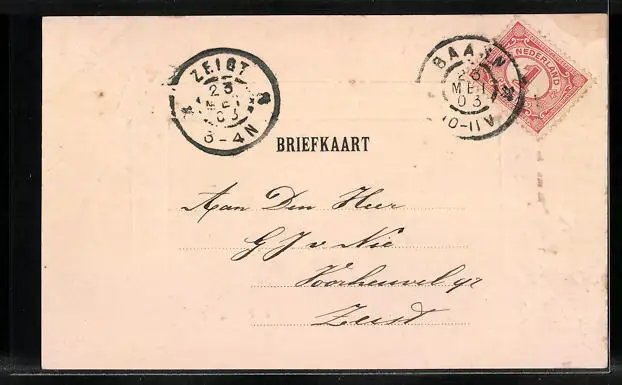 ZEIST
23
MEI
03
3-4N
BAARN
23
MEI
03
10-11V
NEDERLAND
1
BRIEFKAART
Aan Den Heer
G J v Nie
Voorheuvel 97
Zeist